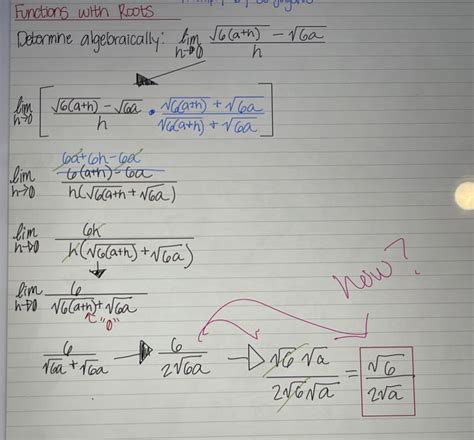 Functions with Roots
Determine algebraically: lim h→0 (√6(a+h) - √6a)/h
lim h→0 [ (√6(a+h) - √6a)/h • (√6(a+h) + √6a)/(√6(a+h) + √6a) ]
6a+6h-6a
lim h→0 (6(a+h)-6a)/(h(√6(a+h + √6a))
lim h→0 6h/(h(√6(a+h) + √6a))
lim h→0 6/(√6(a+h) + √6a)
"0"
how?
6/(√6a + √6a) → 6/(2√6a) → (√6 √6 √a)/(2√6 √a) = √6/(2√a)